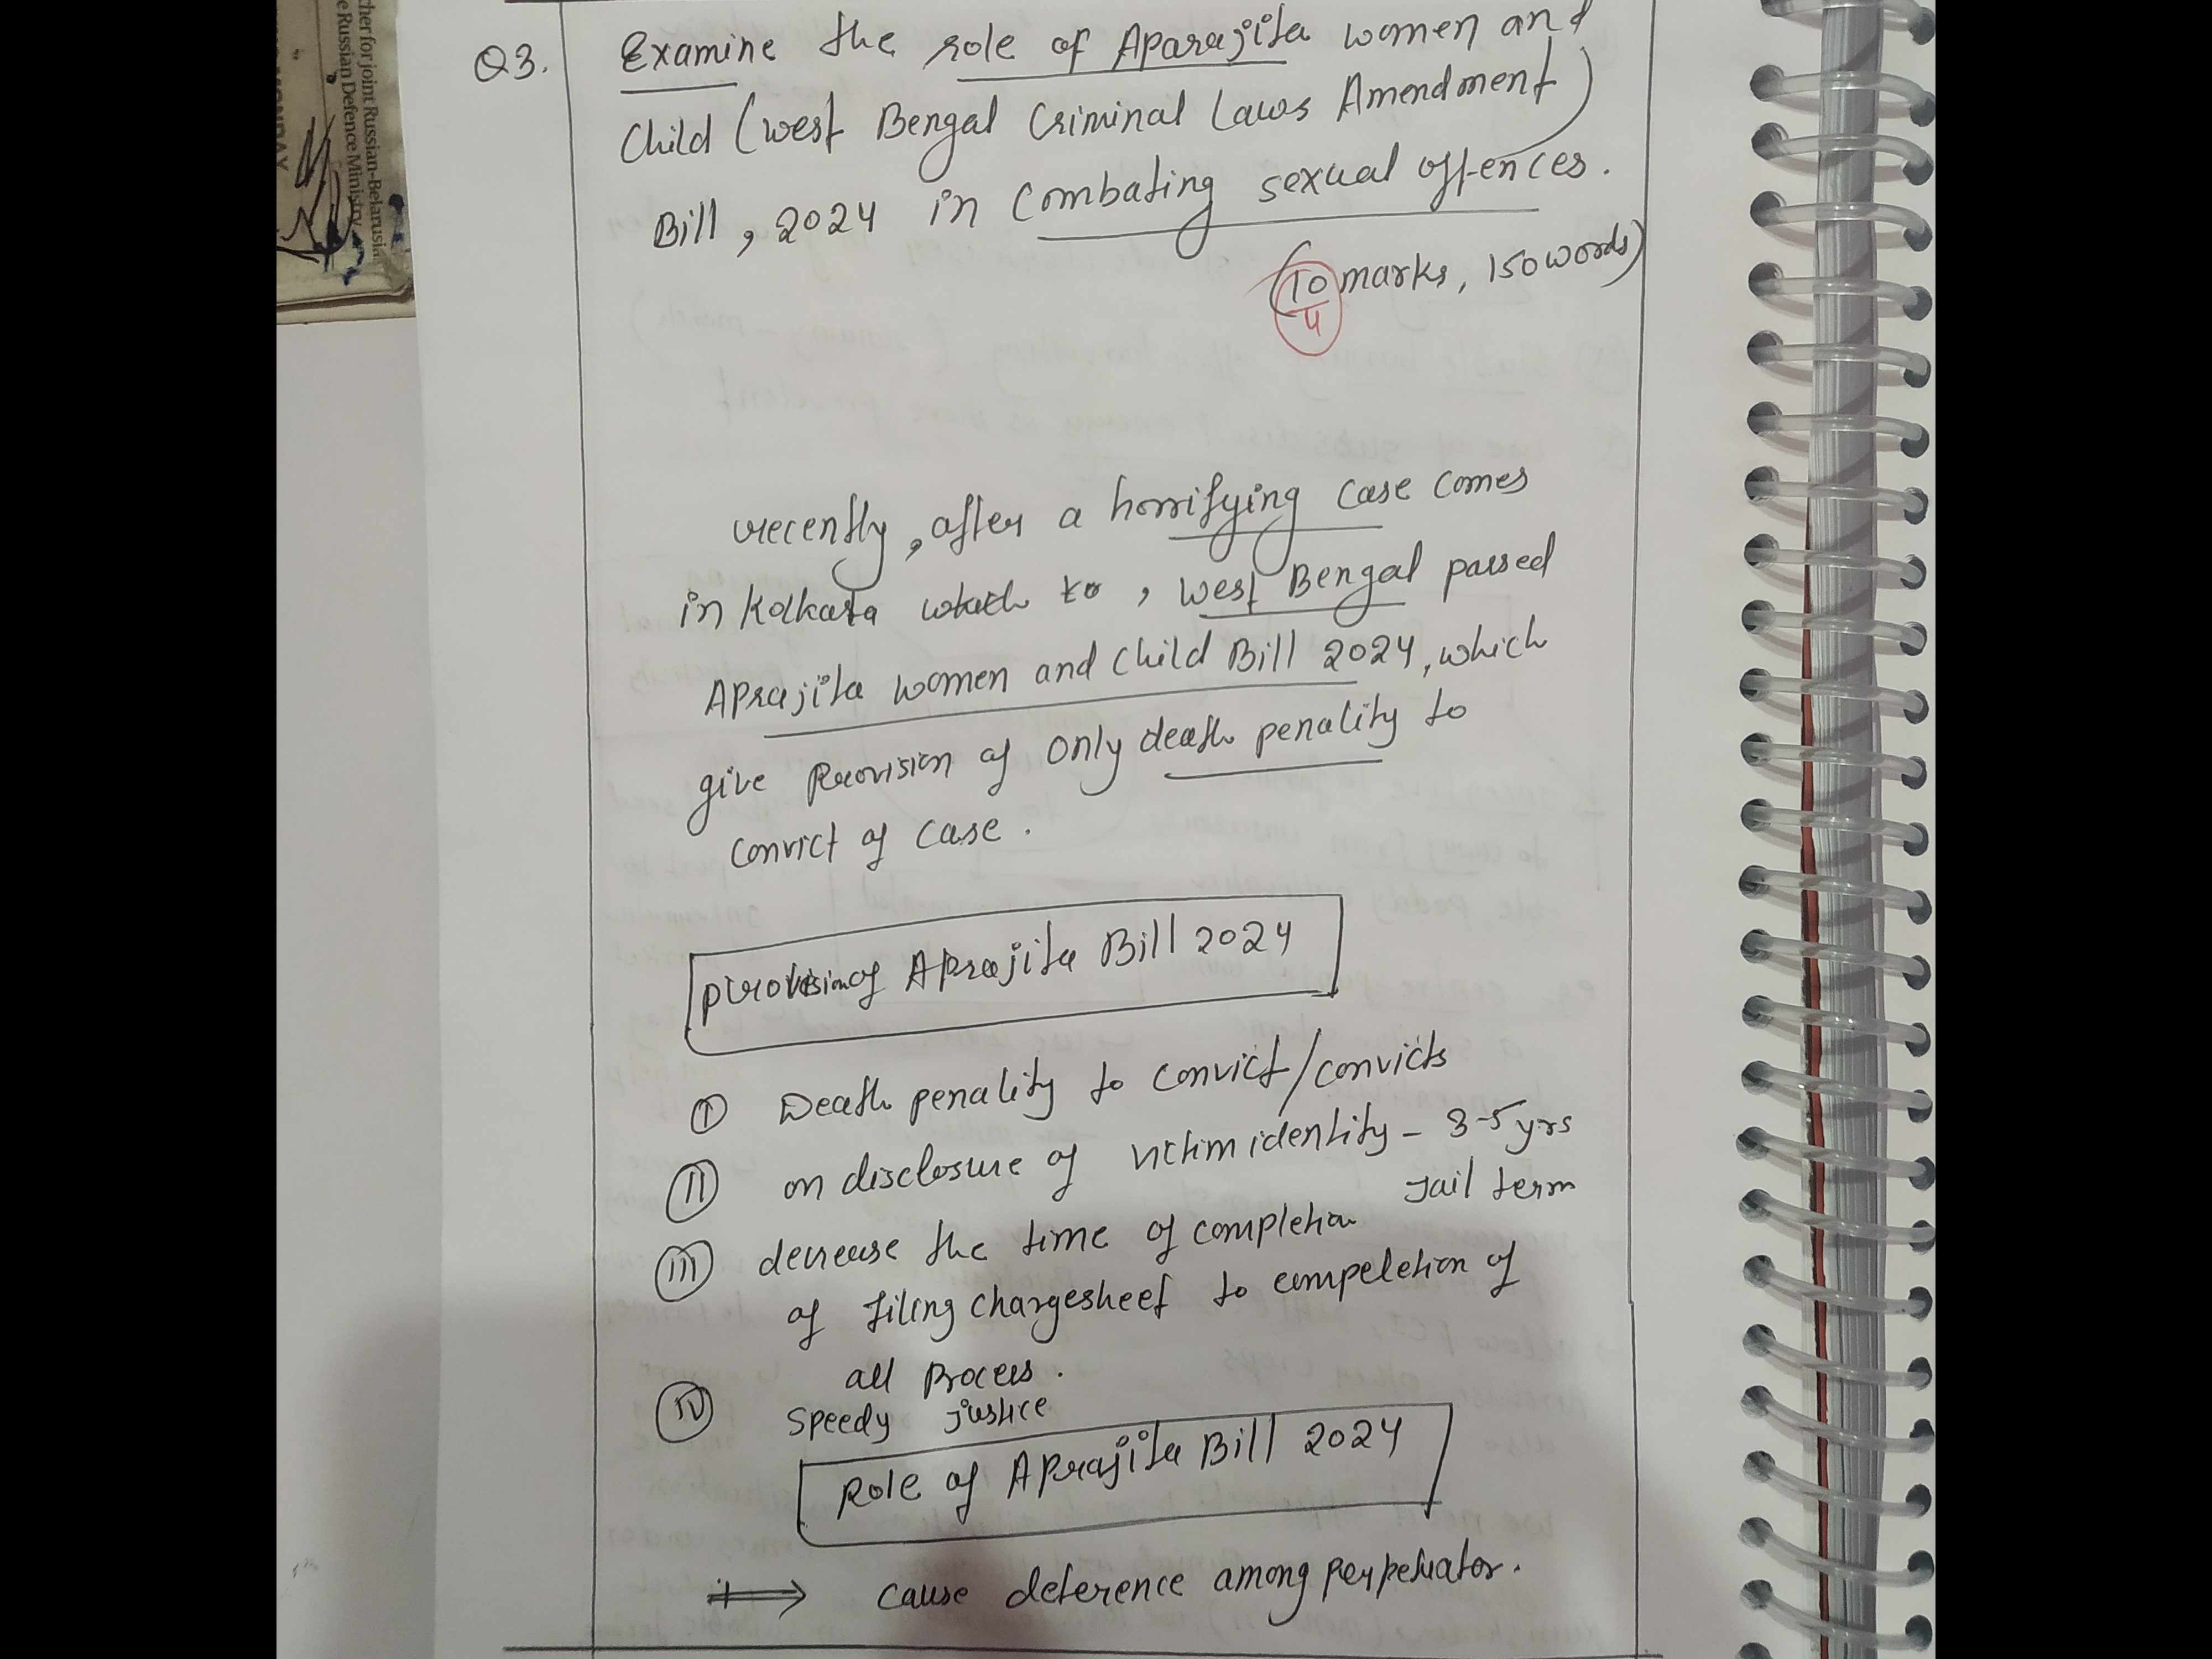 cher for joint Russian-Belarusia
e Russian Defence Ministry
Q3. Examine the role of Aparajita women and
Child (west Bengal Criminal Laws Amendment)
Bill, 2024 in Combating sexual offences.
(10 marks, 150 words)
4
recently, after a horrifying case comes
in Kolkata which to, west Bengal passed
Aprajita women and Child Bill 2024, which
give Provision of only death penality to
convict of case.
provision of Aprajita Bill 2024
I Death penality to convict/convicts
II on disclosure of victim identity - 3-5 yrs
Jail term
III decrease the time of completion
of filing chargesheet to compeletion of
all Process.
IV Speedy justice
Role of Aprajita Bill 2024
cause deterence among perpetuator.